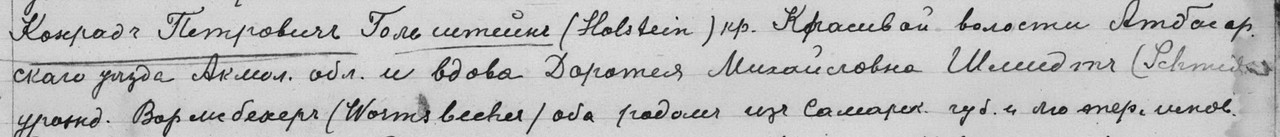 Конрадъ Петровичъ Гольштейнъ (Holstein) кр. Красивой волости Атбасар.
скаго уѣзда Акмол. обл. и вдова Даротея Михайловна Шмидтъ (Schmidt
урожд. Вормсбехеръ (Wormsbecher) оба родомъ изъ Самарск. губ. и лютер. исков.